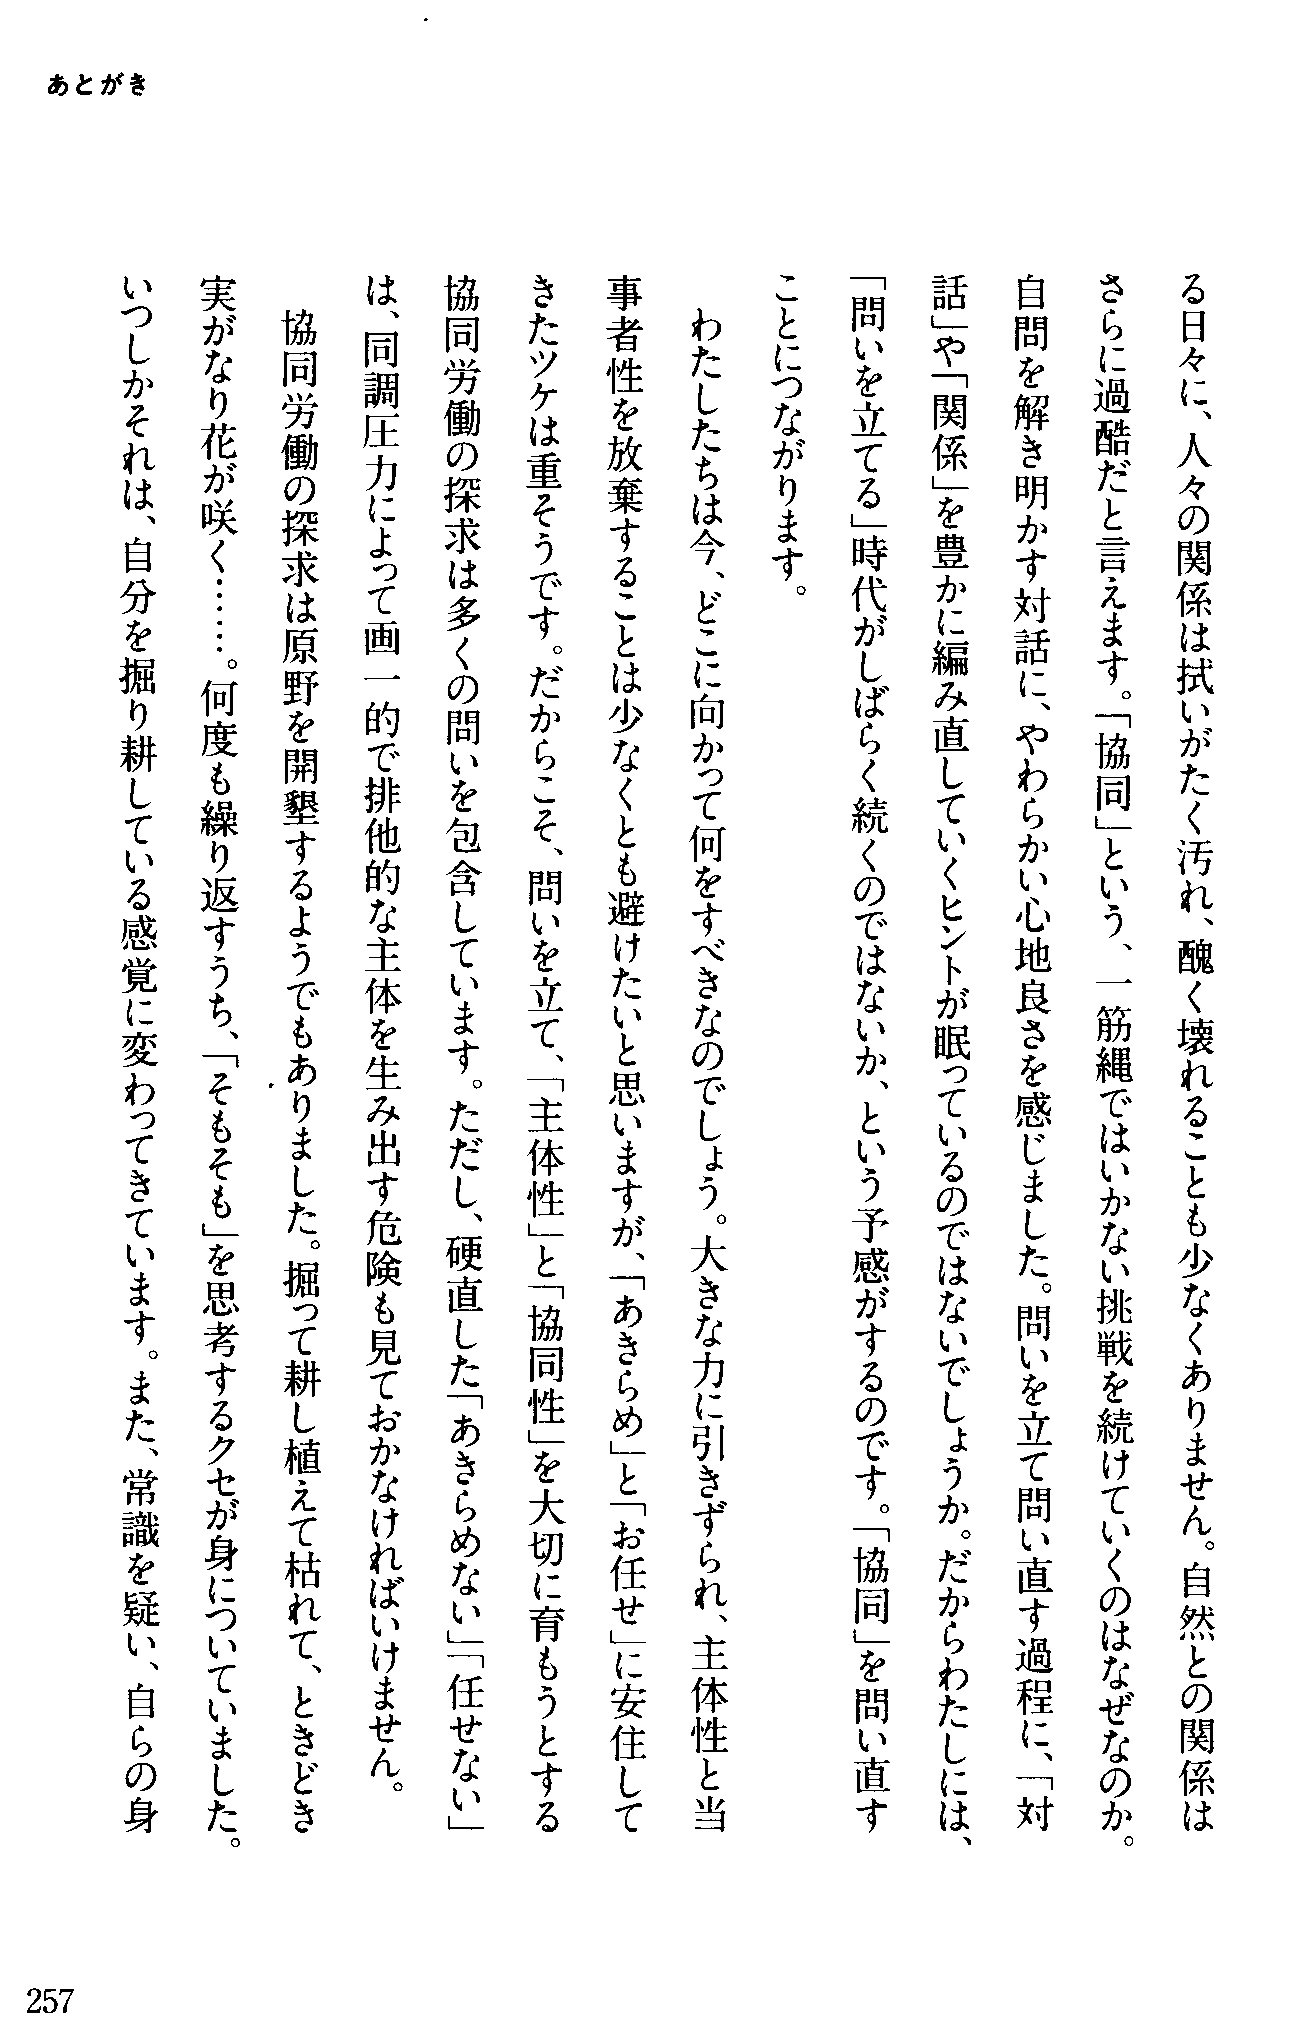 あとがき
る日々に、人々の関係は拭いがたく汚れ、醜く壊れることも少なくありません。自然との関係は
さらに過酷だと言えます。「協同」という、一筋縄ではいかない挑戦を続けていくのはなぜなのか。
自問を解き明かす対話に、やわらかい心地良さを感じました。問いを立て問い直す過程に、「対
話」や「関係」を豊かに編み直していくヒントが眠っているのではないでしょうか。だからわたしには、
「問いを立てる」時代がしばらく続くのではないか、という予感がするのです。「協同」を問い直す
ことにつながります。
わたしたちは今、どこに向かって何をすべきなのでしょう。大きな力に引きずられ、主体性と当
事者性を放棄することは少なくとも避けたいと思いますが、「あきらめ」と「お任せ」に安住して
きたツケは重そうです。だからこそ、問いを立て、「主体性」と「協同性」を大切に育もうとする
協同労働の探求は多くの問いを包含しています。ただし、硬直した「あきらめない」「任せない」
は、同調圧力によって画一的で排他的な主体を生み出す危険も見ておかなければいけません。
協同労働の探求は原野を開墾するようでもありました。掘って耕し植えて枯れて、ときどき
実がなり花が咲く……。何度も繰り返すうち、「そもそも」を思考するクセが身についていました。
いつしかそれは、自分を掘り耕している感覚に変わってきています。また、常識を疑い、自らの身
257